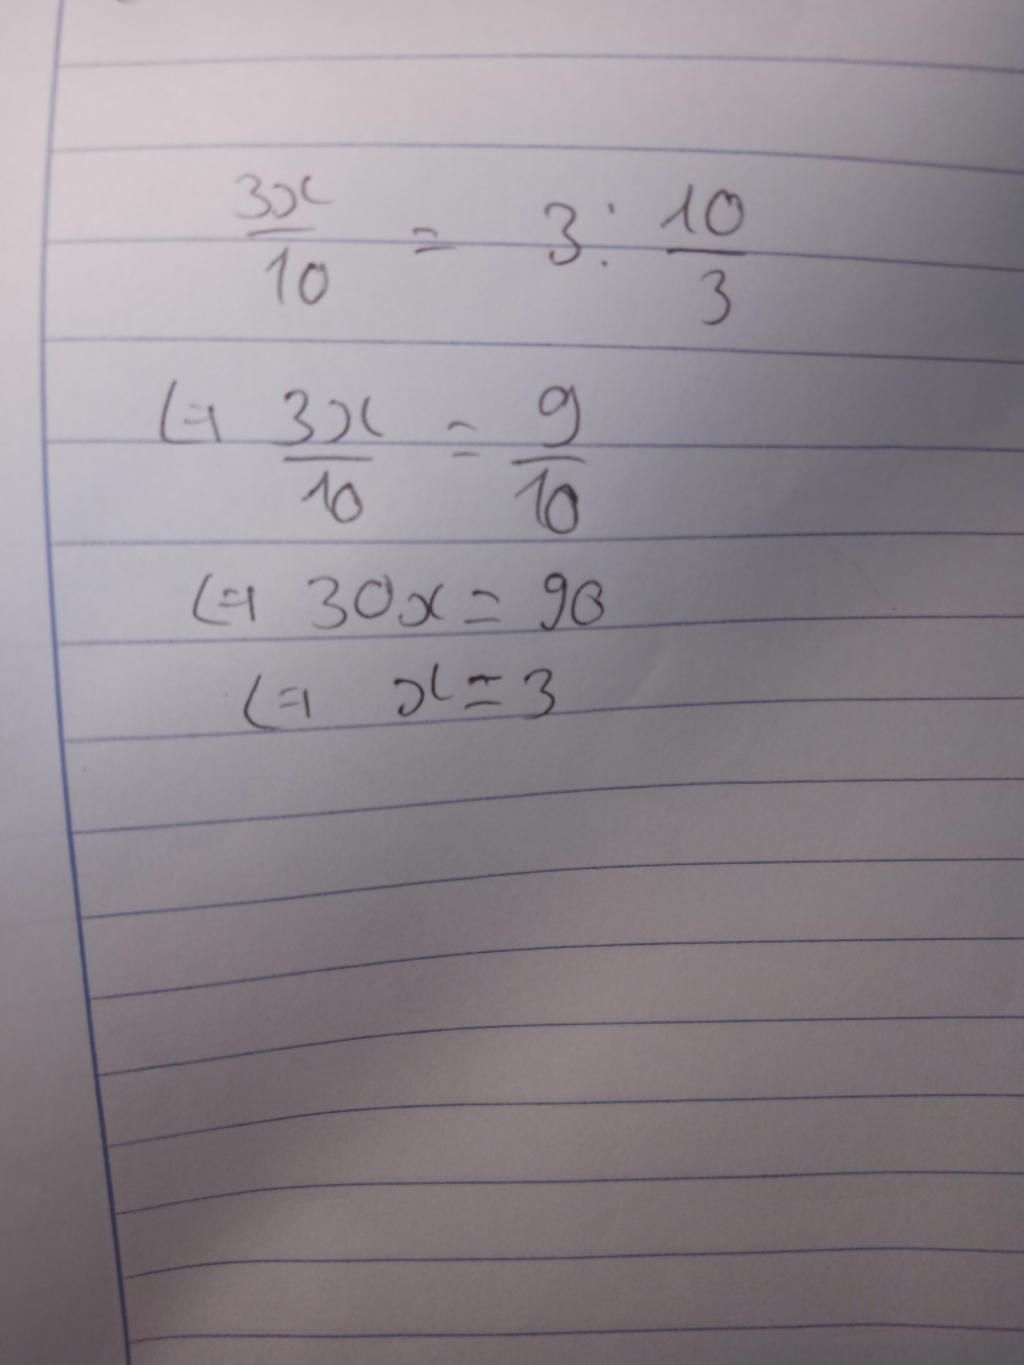 3x/10 = 3 : 10/3
⇔ 3x/10 = 9/10
⇔ 30x = 90
⇔ x = 3